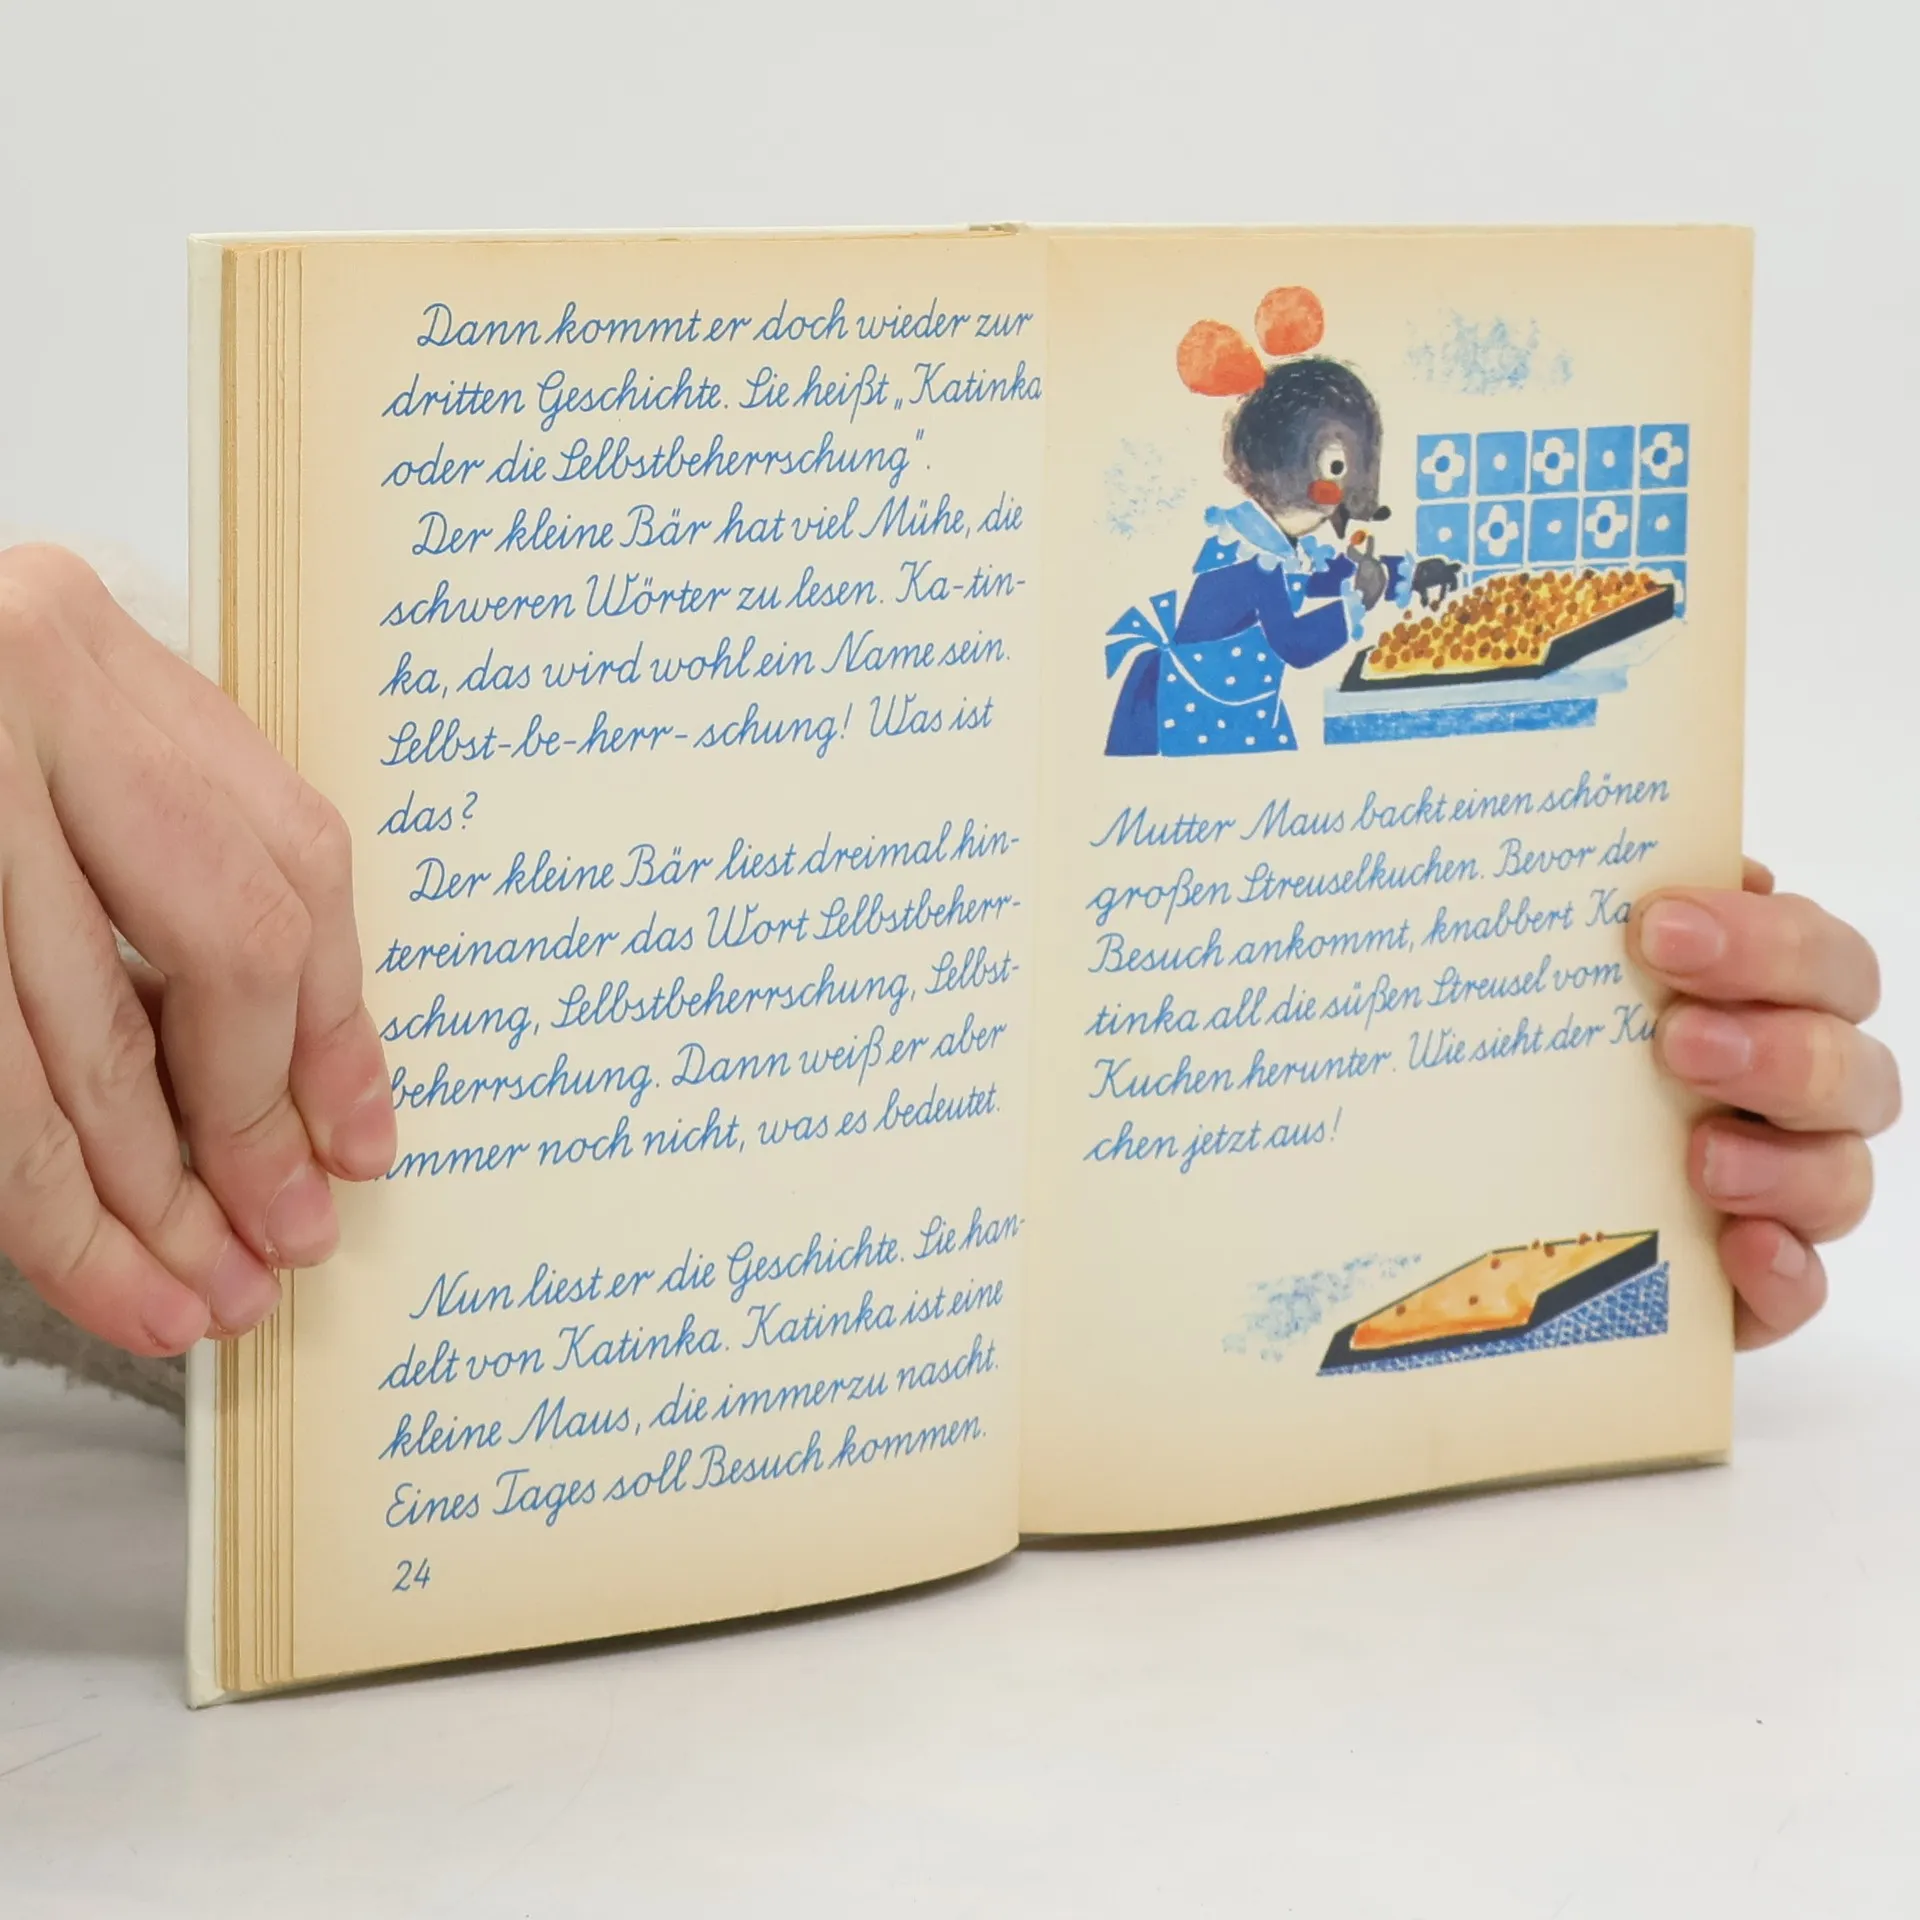 Dann kommt er doch wieder zur
dritten Geschichte. Sie heißt „Katinka
oder die Selbstbeherrschung".
Der kleine Bär hat viel Mühe, die
schweren Wörter zu lesen. Ka-tin-
ka, das wird wohl ein Name sein.
Selbst-be-herr-schung! Was ist
das?
Der kleine Bär liest dreimal hin-
tereinander das Wort Selbstbeherr-
schung, Selbstbeherrschung, Selbst-
beherrschung. Dann weiß er aber
immer noch nicht, was es bedeutet.
Nun liest er die Geschichte. Sie han-
delt von Katinka. Katinka ist eine
kleine Maus, die immerzu nascht.
Eines Tages soll Besuch kommen.
24
Mutter Maus backt einen schönen
großen Streuselkuchen. Bevor der
Besuch ankommt, knabbert Ka
tinka all die süßen Streusel vom
Kuchen herunter. Wie sieht der Ku
chen jetzt aus!